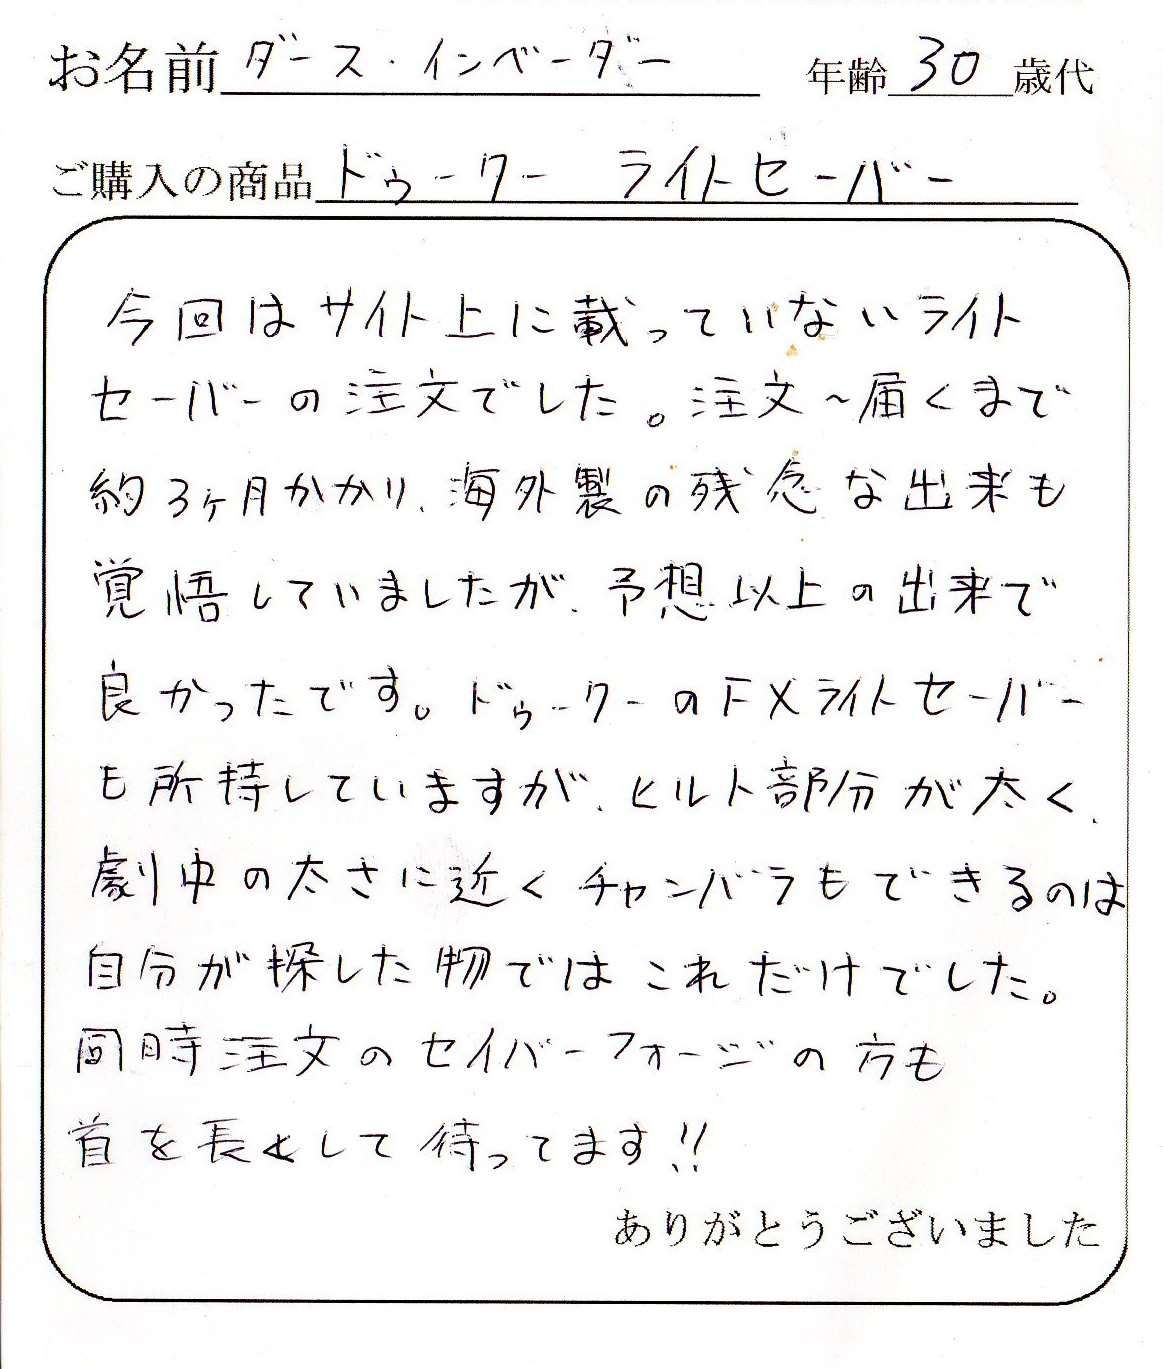 お名前 ダース・インベーダー 年齢 30 歳代
ご購入の商品 ドゥークー ライトセーバー
今回はサイト上に載っていないライト
セーバーの注文でした。注文~届くまで
約3ヶ月かかり、海外製の残念な出来も
覚悟していましたが、予想以上の出来で
良かったです。ドゥークーのFXライトセーバー
も所持していますが、ヒルト部分が太く、
劇中の太さに近くチャンバラもできるのは
自分が探した物ではこれだけでした。
同時注文のセイバーフォージの方も
首を長くして待ってます!!
ありがとうございました